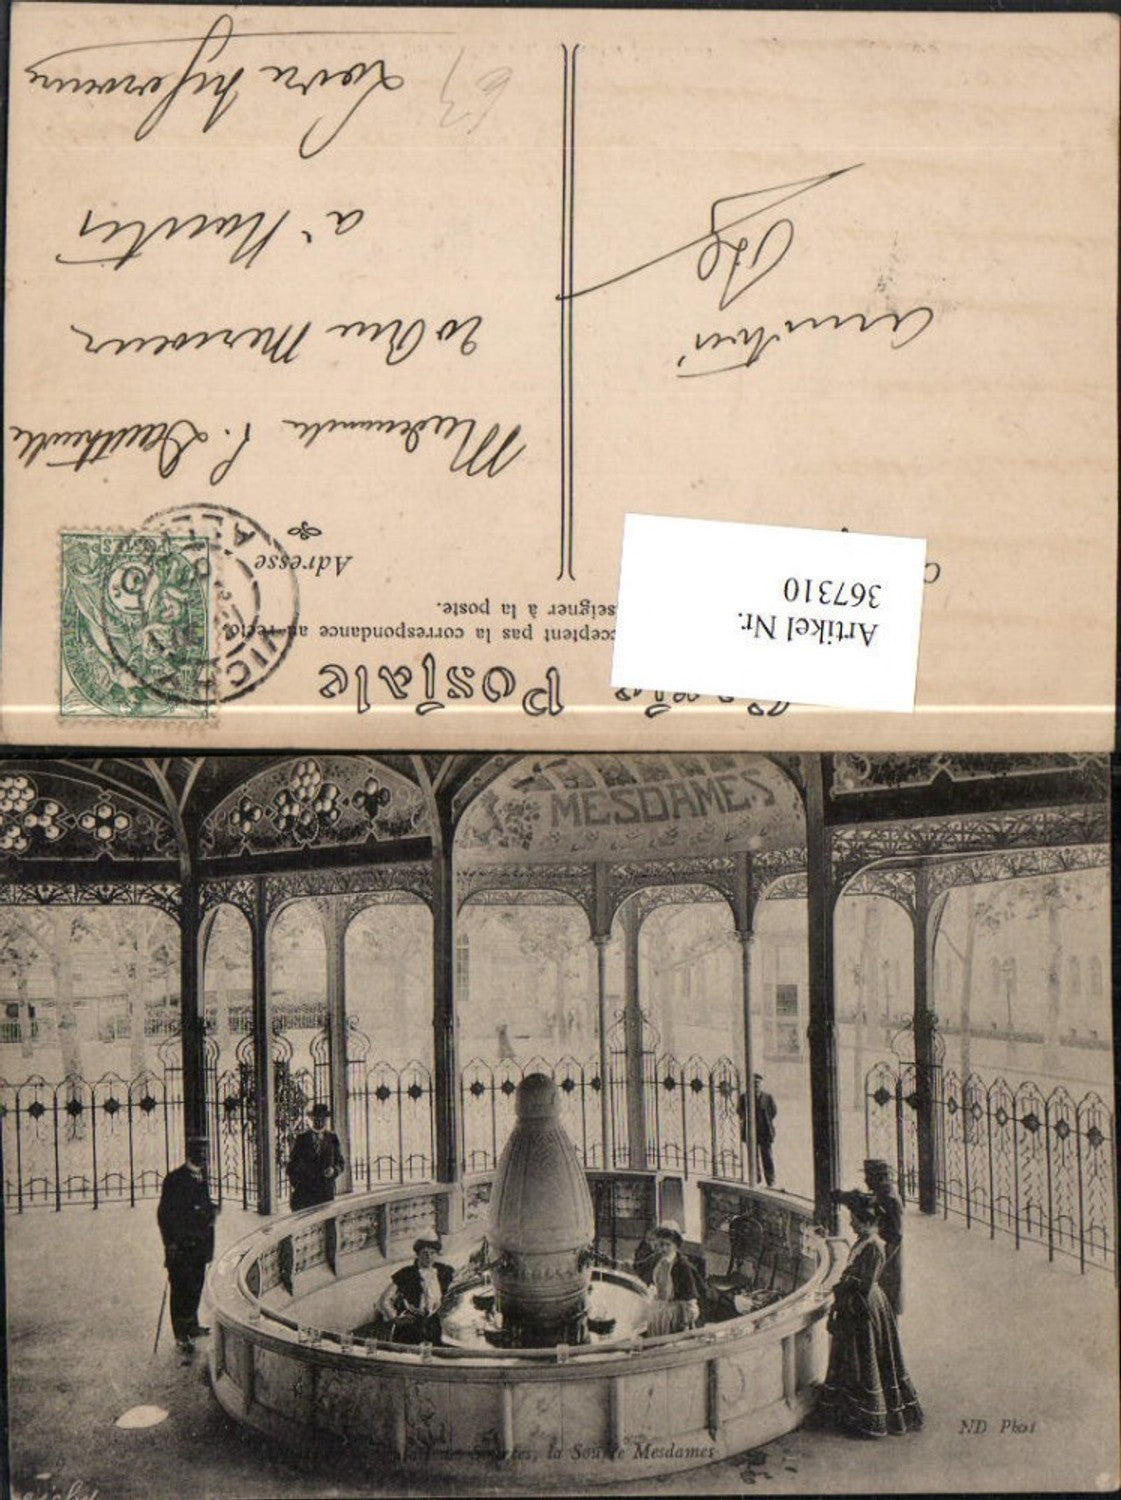 Carte Postale
ceptent pas la correspondance au recto
seigner à la poste.
Adresse
Artikel Nr.
367310
VICHY
ALLIER
Mademoiselle
20 Rue
à Nantes
Loire Inférieure
amitiés
63
MESDAMES
Sources, la Source Mesdames
ND Phot